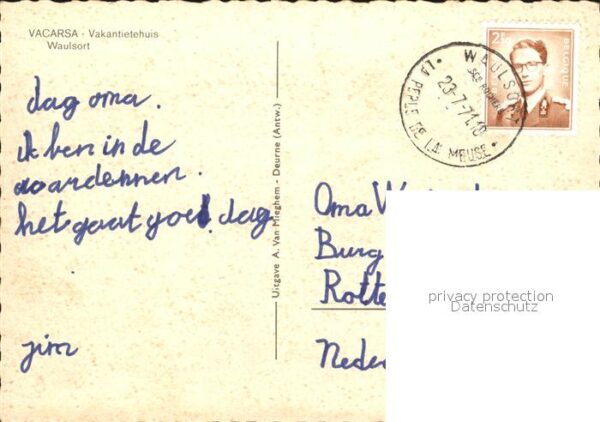 VACARSA - Vakantietehuis
Waulsort
dag oma.
ik ben in de
aardennen.
het gaat goed. dag
jim
Uitgave A. Van Mieghem - Deurne (Antw.)
WAULSORT
SES ROCHERS
23-7-71.18
LA PERLE DE LA MEUSE
2F
BELGIQUE
Oma
Burg
Rotte
Neder
privacy protection
Datenschutz